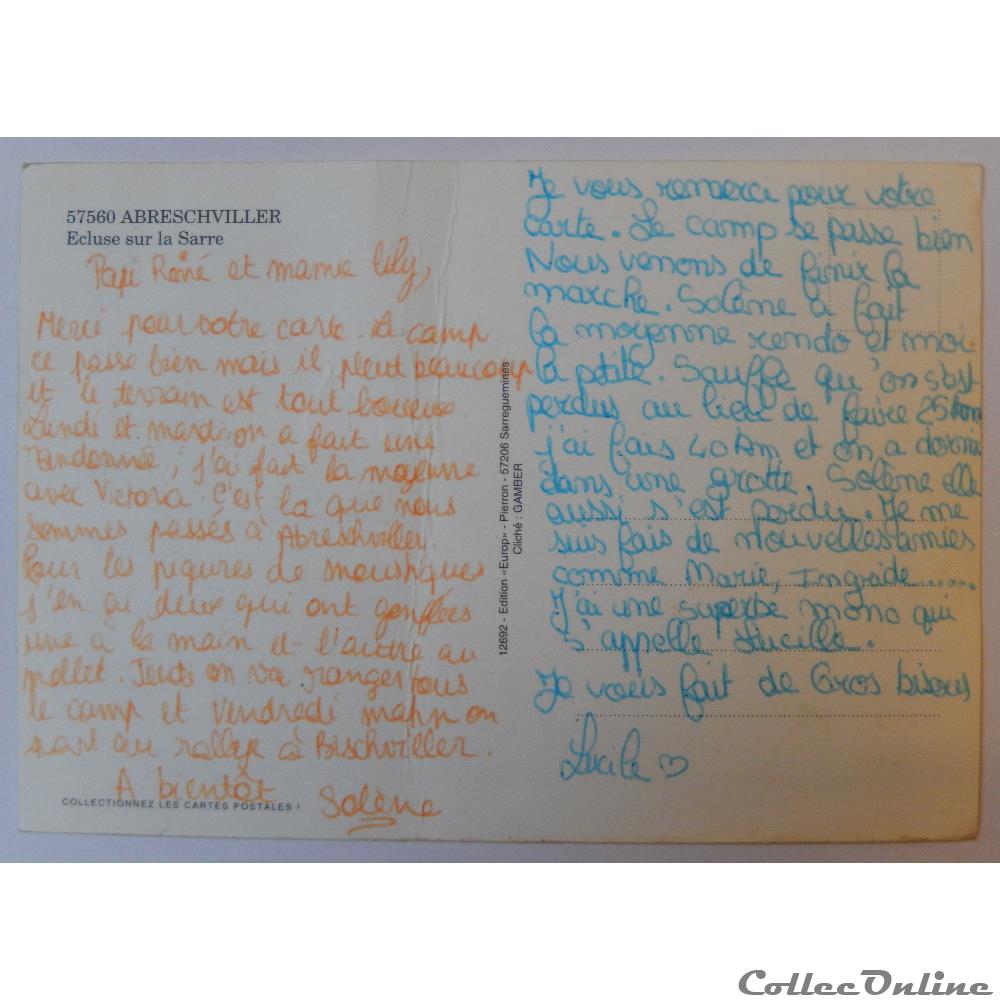 57560 ABRESCHVILLER
Ecluse sur la Sarre
Papi René et mamie Lily,
Merci pour votre carte. Le camp
ce passe bien mais il pleut beaucoup
et le terrain est tout boueux.
Lundi et mardi on a fait une
randonnée, j'ai fait la moyenne
avec Victora. C'est la que nous
sommes passés à Abreschviller.
Pour les piqures de moustiques
j'en ai deux qui ont gonflées
une à la main et l'autre au
mollet. Jeudi on va ranger tous
le camp et Vendredi matin on
part au rallye à Bischviller.
A bientôt
Solène
COLLECTIONNEZ LES CARTES POSTALES !
12692 - Edition «Europ» - Pierron - 57206 Sarreguemines
Cliché : GAMBER
Je vous remerci pour votre
carte. Le camp se passe bien
Nous venons de finir la
marche. Solène à fait
la moyenne rendo et moi
la petite. Sauffe qu'on s'est
perdus au lieu de faire 25 km
j'ai fais 40 km et on a dormi
dans une grotte. Solène elle
aussi s'est perdu. Je me
suis fais de nouvelles amies
comme Marie, Ingride......
J'ai une superbe mono qui
s'appelle Lucille.
Je vous fait de Gros bisous
Lucile ♡
CollecOnline